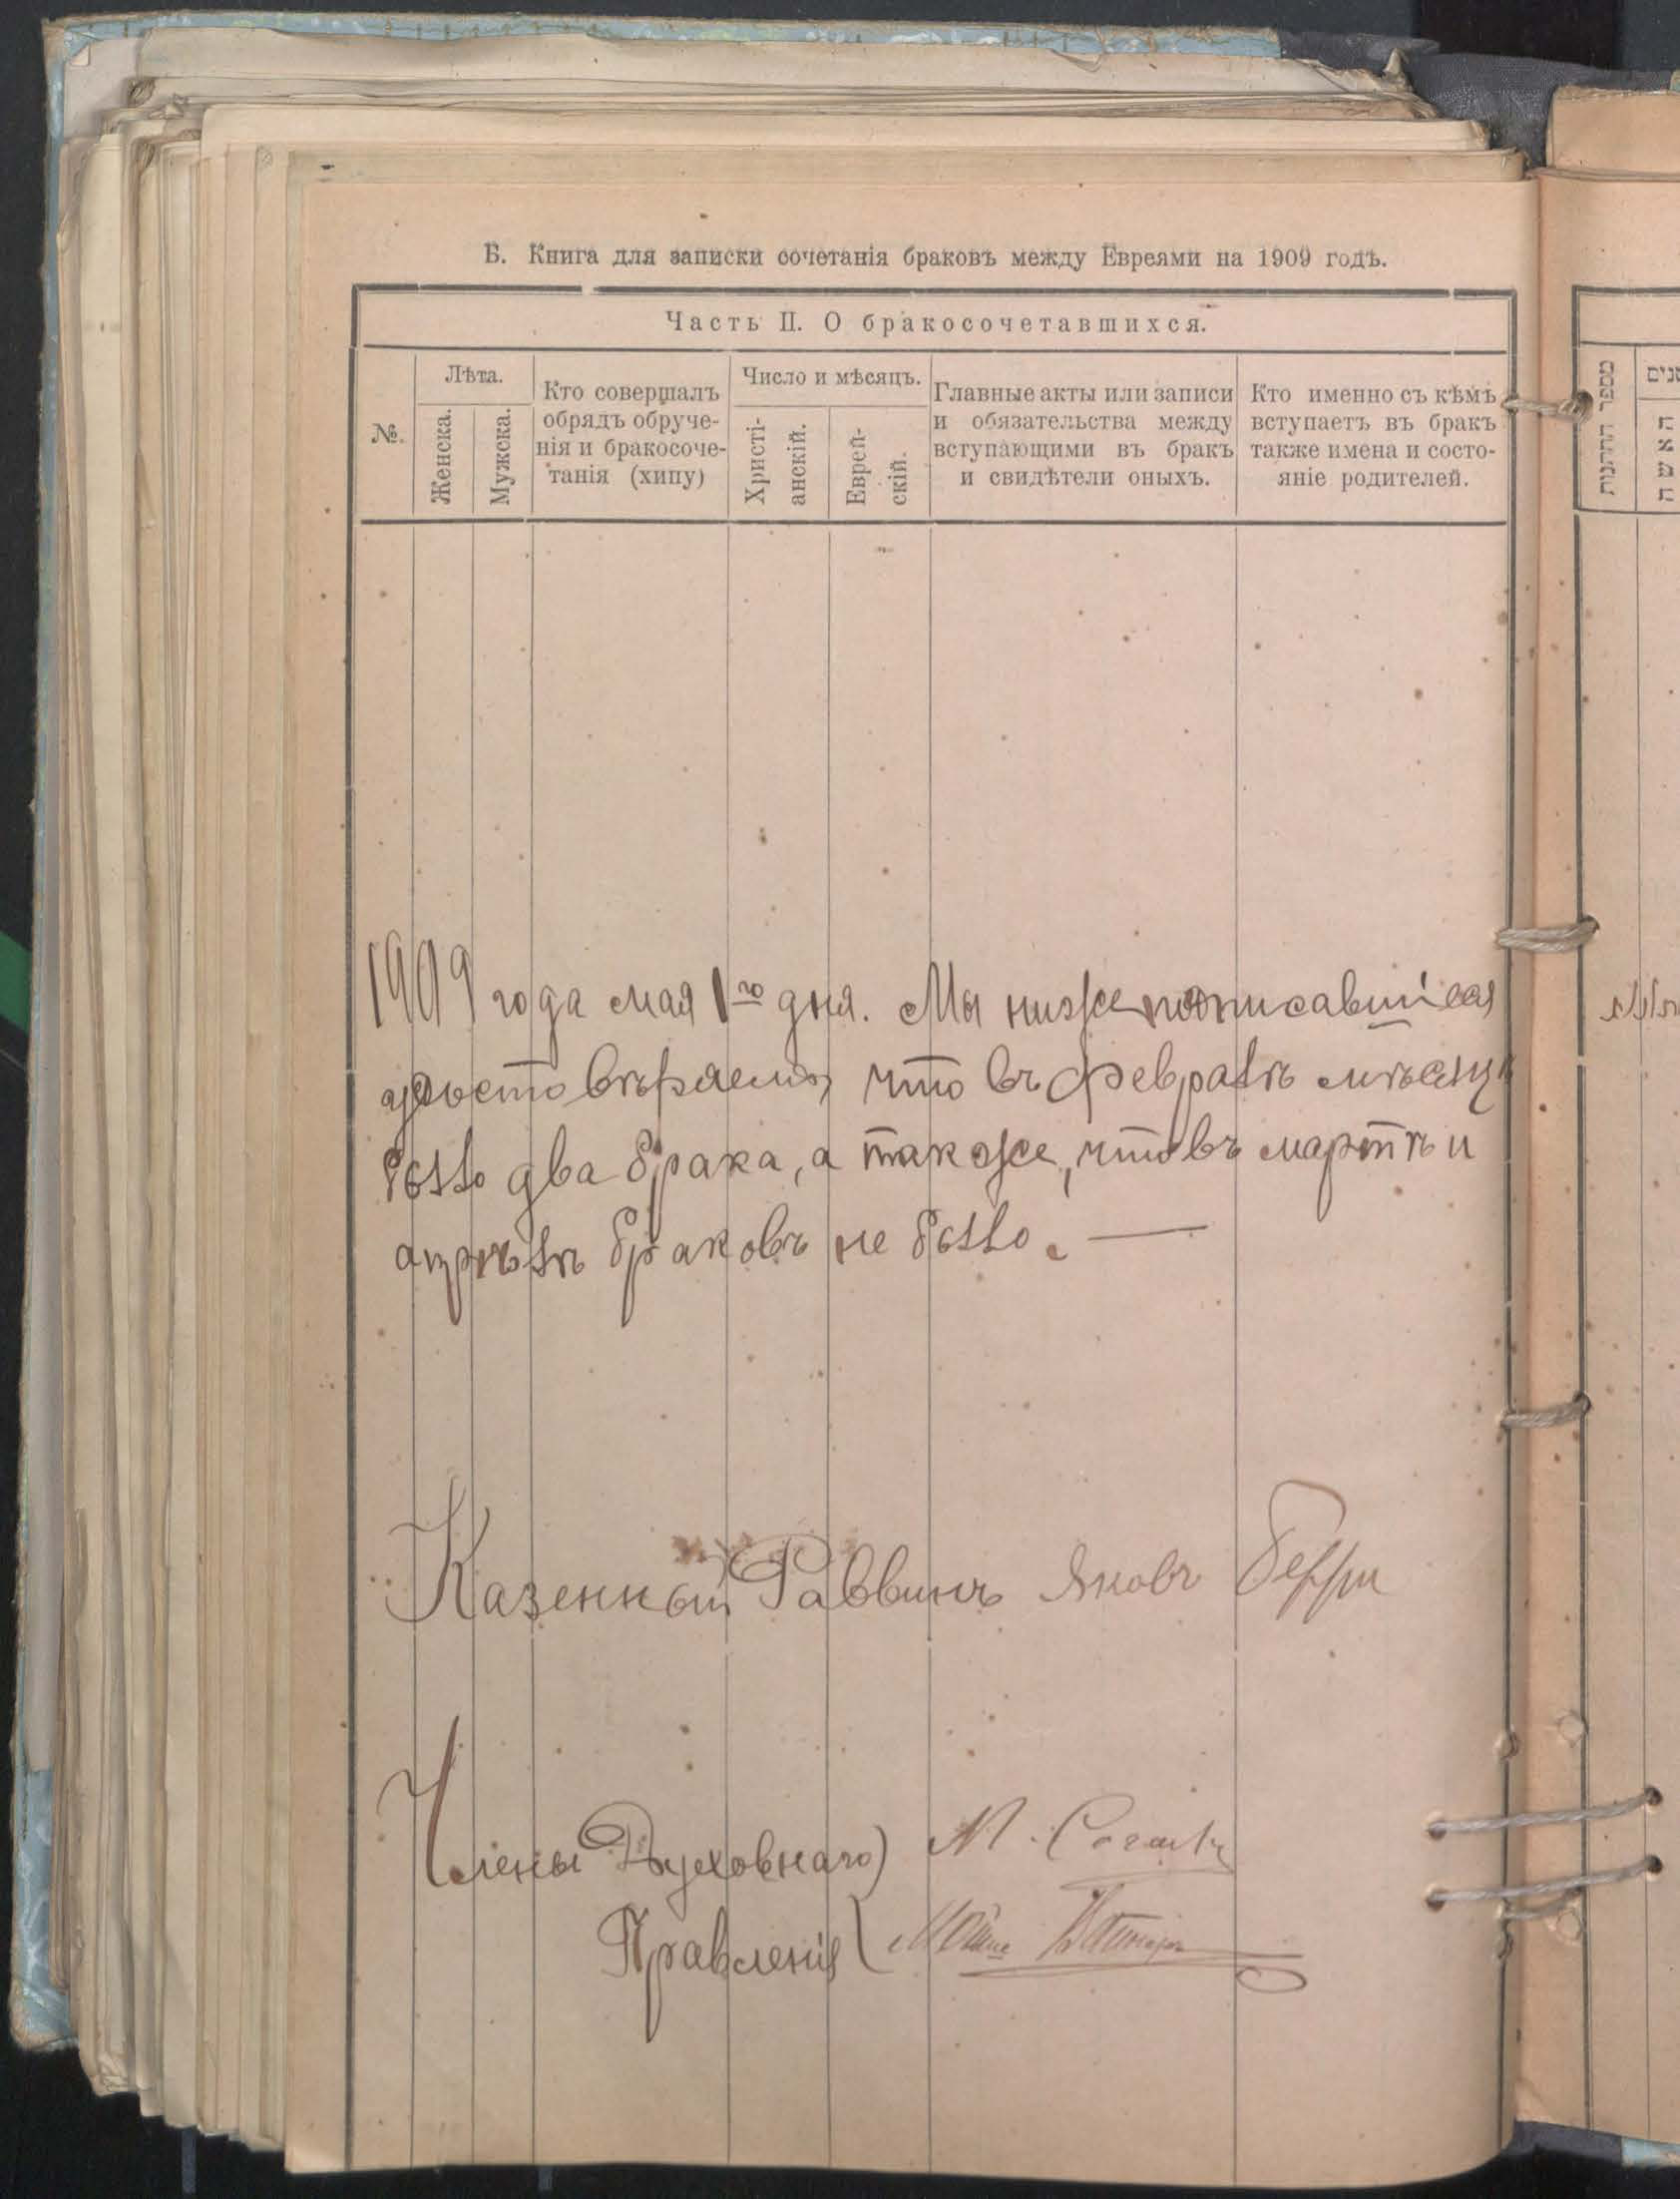 Б. Книга для записки сочетанія браковъ между Евреями на 1909 годъ.
Часть II. О бракосочетавшихся.
№.
Лѣта.
Женска.
Мужска.
Кто совершалъ
обрядъ обруче-
нія и бракосоче-
танія (хипу)
Число и мѣсяцъ.
Христі-
анскій.
Еврей-
скій.
Главные акты или записи
и обязательства между
вступающими въ бракъ
и свидѣтели оныхъ.
Кто именно съ кѣмъ
вступаетъ въ бракъ
также имена и состо-
яніе родителей.
1909 года мая 1го дня. Мы нижеподписавшіеся
удостовѣряемъ, что въ февралѣ мѣсяцѣ
было два брака, а также, что въ мартѣ и
апрѣлѣ браковъ не было. —
Казенный Раввинъ Яковъ
Члены Духовнаго) М.
Правленія (
מספר החתנות
האשה